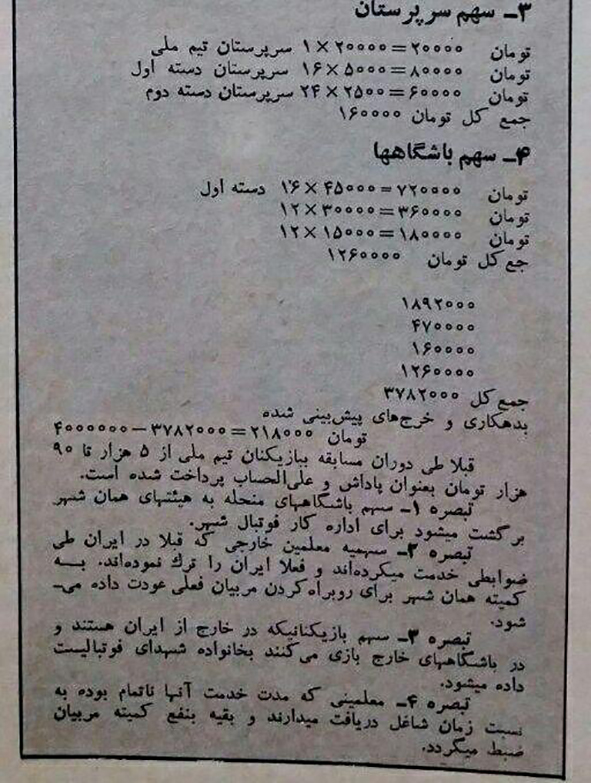 ۳ـ سهم سرپرستان
تومان ۲۰۰۰۰=۲۰۰۰۰×۱ سرپرستان تیم ملی
تومان ۸۰۰۰۰=۵۰۰۰×۱۶ سرپرستان دسته اول
تومان ۶۰۰۰۰=۲۵۰۰×۲۴ سرپرستان دسته دوم
جمع کل تومان ۱۶۰۰۰۰
۴ـ سهم باشگاهها
تومان ۷۲۰۰۰۰=۴۵۰۰۰×۱۶ دسته اول
تومان ۳۶۰۰۰۰=۳۰۰۰۰×۱۲
تومان ۱۸۰۰۰۰=۱۵۰۰۰×۱۲
جع کل تومان ۱۲۶۰۰۰۰
۱۸۹۲۰۰۰
۴۷۰۰۰۰
۱۶۰۰۰۰
۱۲۶۰۰۰۰
جمع کل ۳۷۸۲۰۰۰
بدهکاری و خرج‌های پیش‌بینی شده
تومان ۲۱۸۰۰۰=۳۷۸۲۰۰۰−۴۰۰۰۰۰۰
قبلا طی دوران مسابقه ببازیکنان تیم ملی از ۵ هزار تا ۹۰
هزار تومان بعنوان پاداش و علی‌الحساب پرداخت شده است.
تبصره ۱ـ سهم باشگاههای منحله به هیئتهای همان شهر
برگشت میشود برای اداره کار فوتبال شهر.
تبصره ۲ـ سهمیه معلمین خارجی که قبلا در ایران طی
ضوابطی خدمت میکرده‌اند و فعلا ایران را ترك نموده‌اند. بـه
کمیته همان شهر برای روبراه کردن مربیان فعلی عودت داده می‌ـ
شود.
تبصره ۳ـ سهم بازیکنانیکه در خارج از ایران هستند و
در باشگاههای خارج بازی می‌کنند بخانواده شهدای فوتبالیست
داده میشود.
تبصره ۴ـ معلمینی که مدت خدمت آنها ناتمام بوده به
نسبت زمان شاغل دریافت میدارند و بقیه بنفع کمیته مربیان
ضبط میگردد.